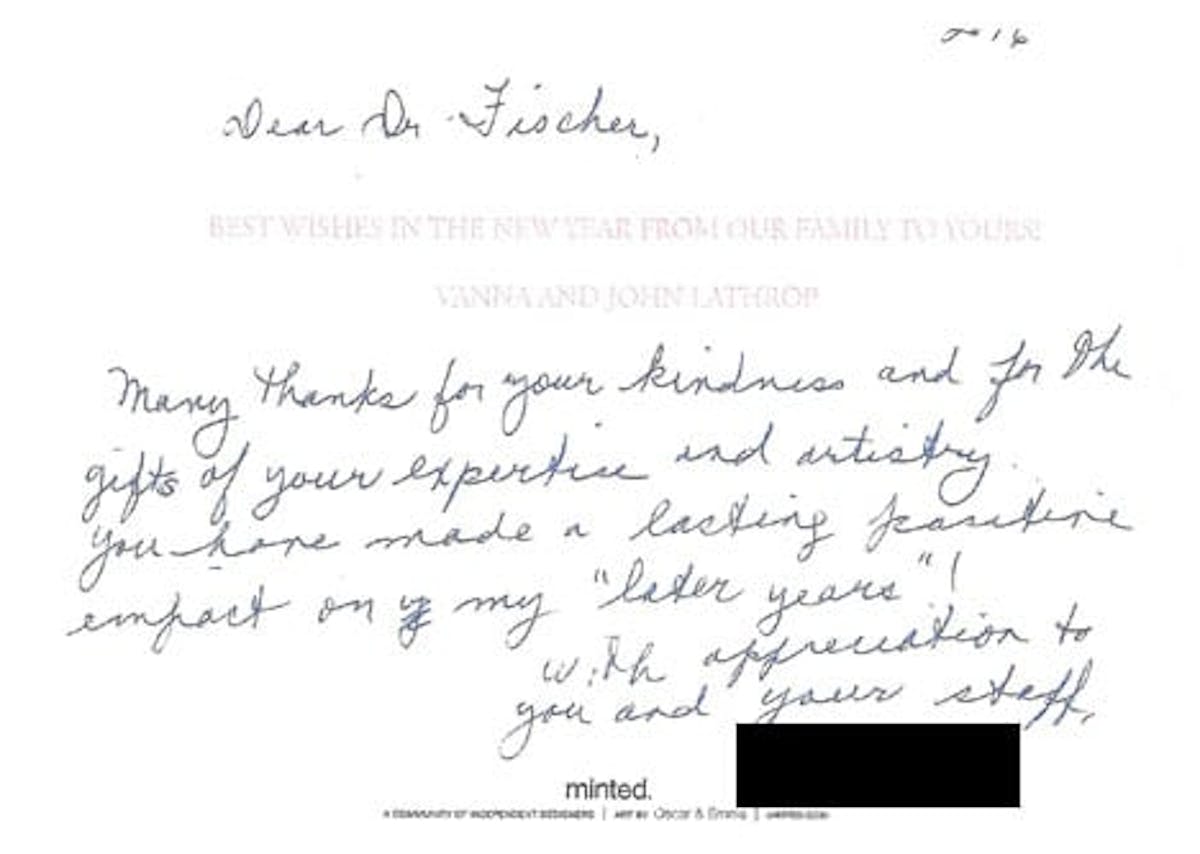 Dear Dr. Fischer,
BEST WISHES IN THE NEW YEAR FROM OUR FAMILY TO YOURS!
VANNA AND JOHN LATHROP
Many thanks for your kindness and for the
gifts of your expertise and artistry.
You have made a lasting positive
impact on my "later years"!
With appreciation to
you and your staff,
minted.
A COMMUNITY OF INDEPENDENT DESIGNERS | ART BY Oscar & Emma | MINTED.COM